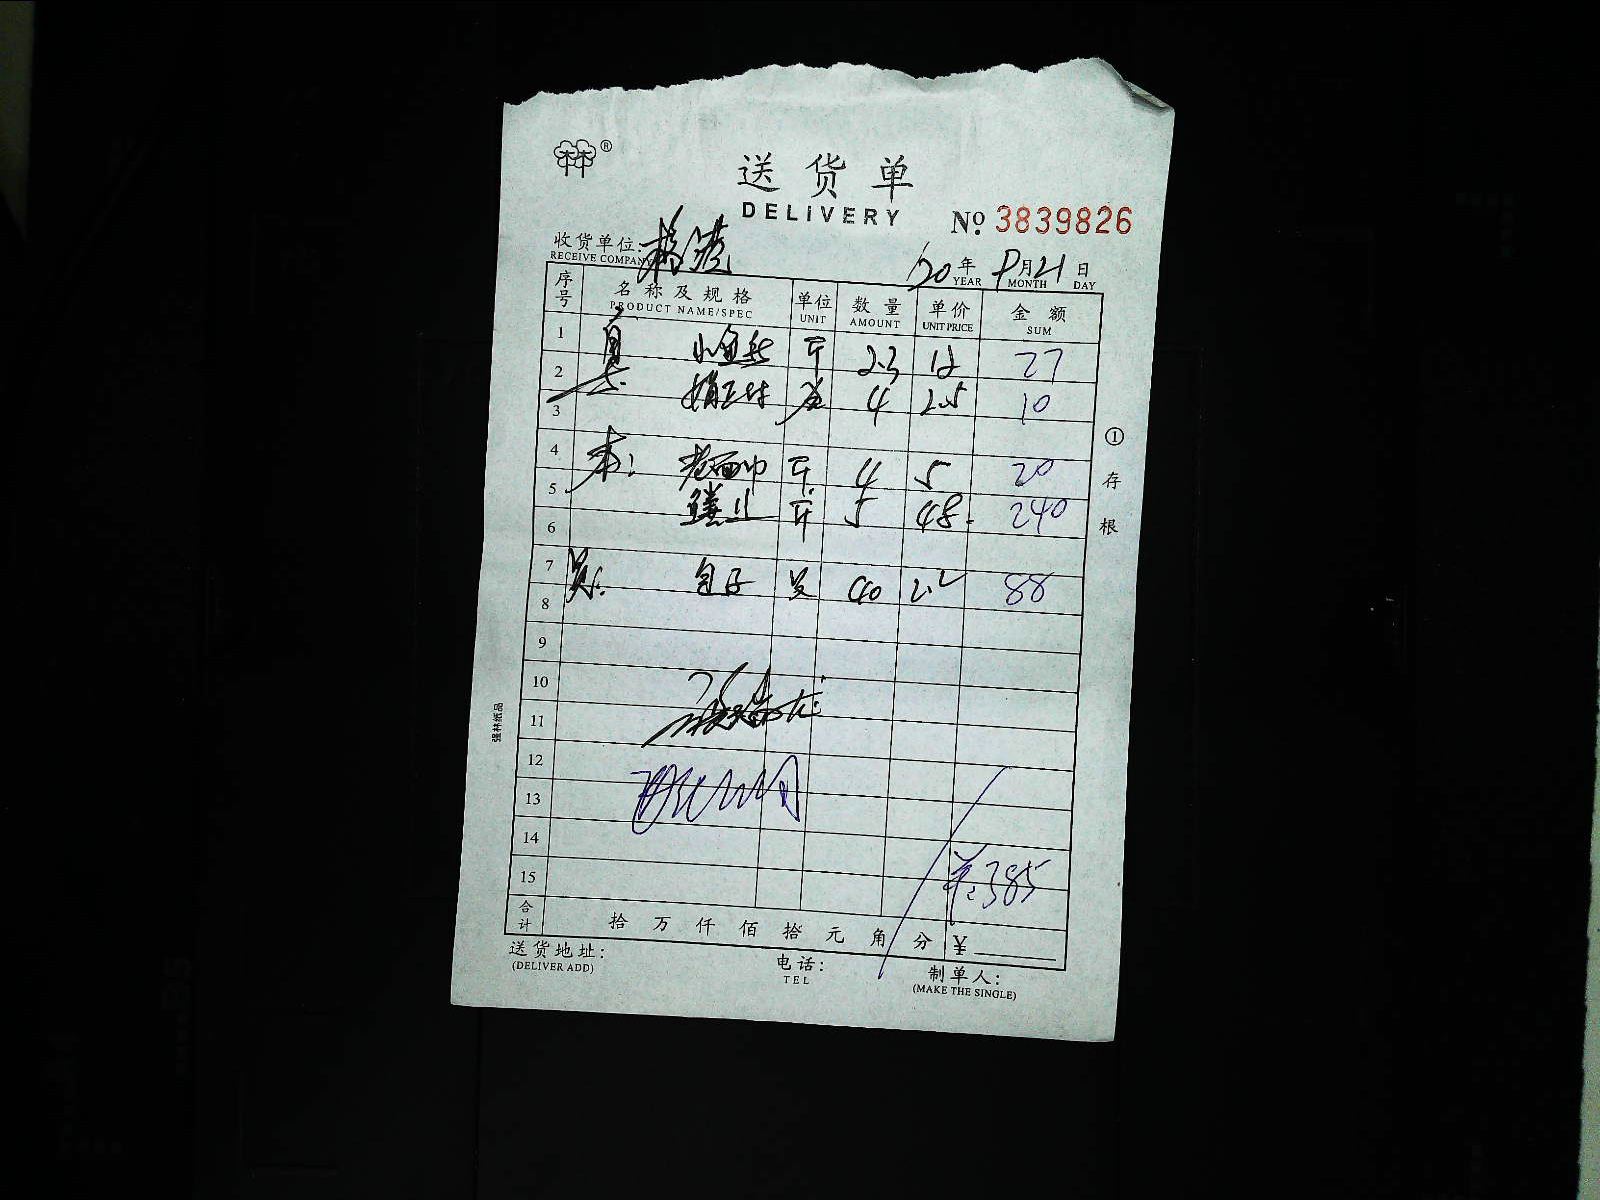 ®
送货单
DELIVERY
№ 3839826
收货单位:
RECEIVE COMPANY
20年 9月21日
YEAR MONTH DAY
序号 名称及规格 单位 数量 单价 金额
PRODUCT NAME/SPEC UNIT AMOUNT UNIT PRICE SUM
1 斤 2.3 12 27
2 4 2.5 10
3
4 斤 4 5 20
5 斤 5 48 240
6
7 包子 40 2.2 88
8
9
10
11
12
13
14
¥:385
15
合计 拾 万 仟 佰 拾 元 角 分 ¥
送货地址: 电话: 制单人:
(DELIVER ADD) TEL (MAKE THE SINGLE)
①存根
强林纸品